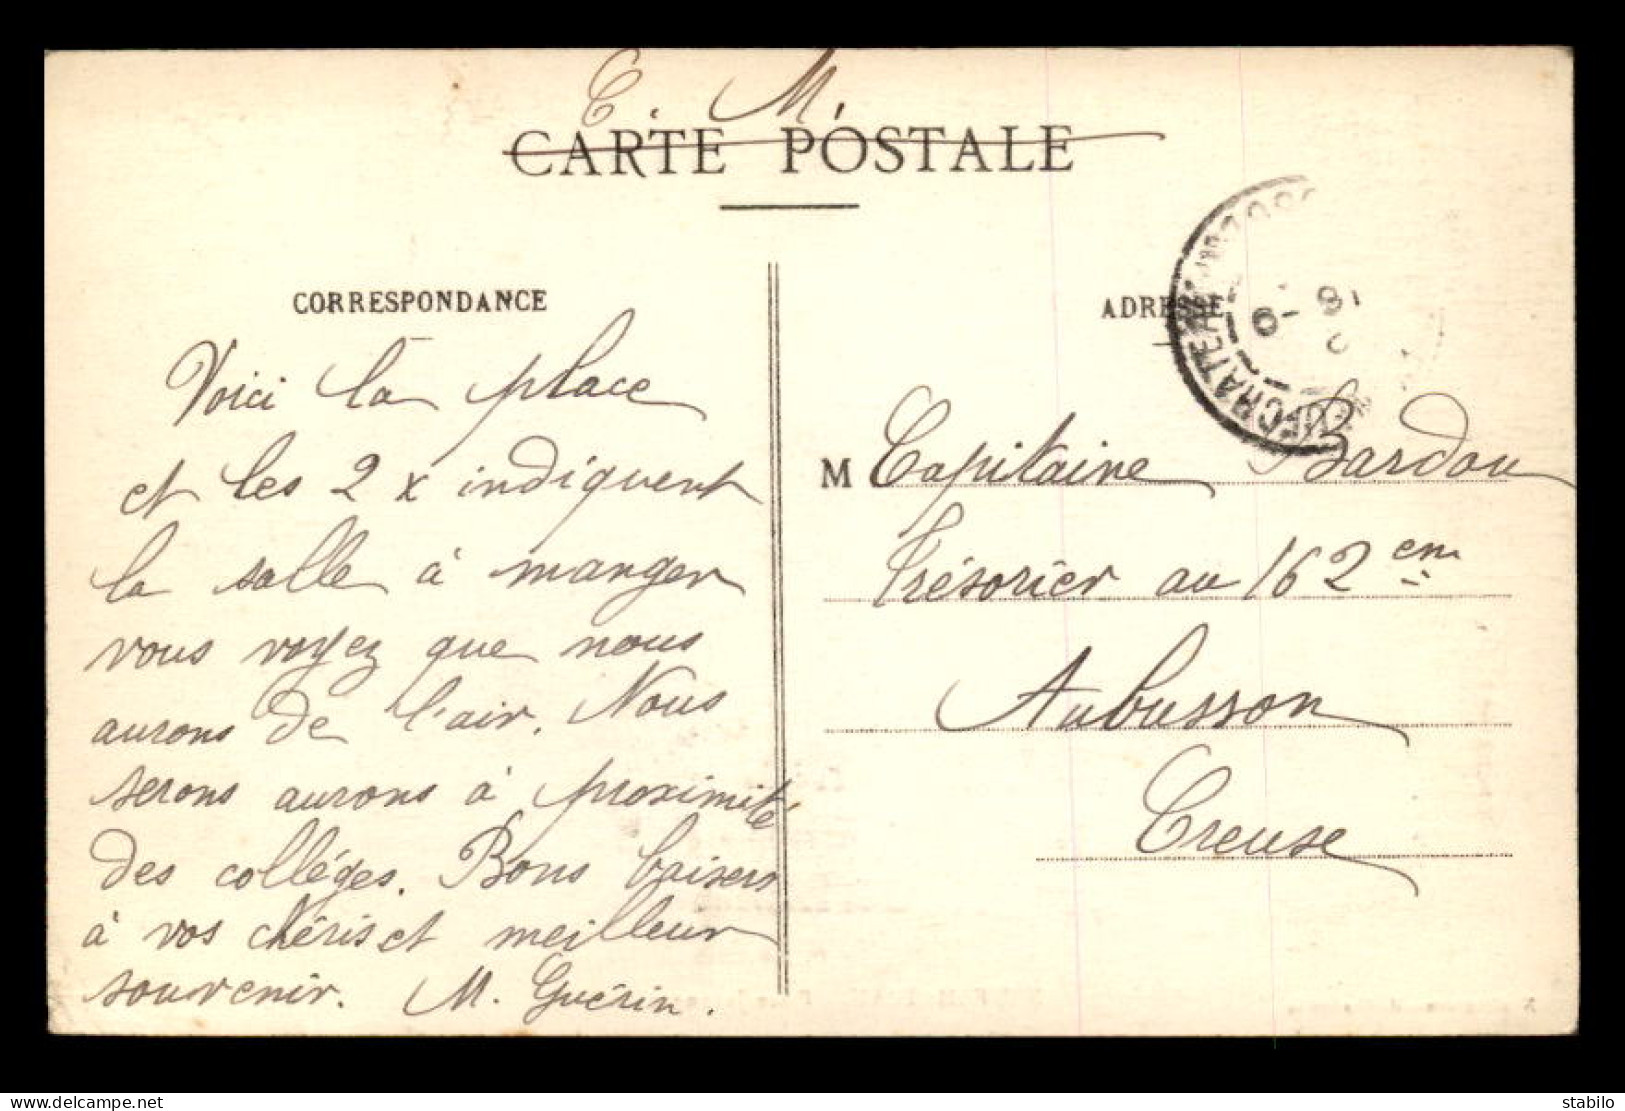 C. M.
CARTE POSTALE
CORRESPONDANCE
Voici la place
et les 2 x indiquent
la salle à manger
vous voyez que nous
aurons de l'air. Nous
serons aurons à proximité
des colléges. Bons baisers
à vos chéris et meilleur
souvenir. M. Guérin.
ADRESSE
M Capitaine Bardou
Trésorier au 162 em
Aubusson
Creuse
https://www.delcampe.net
stabilo